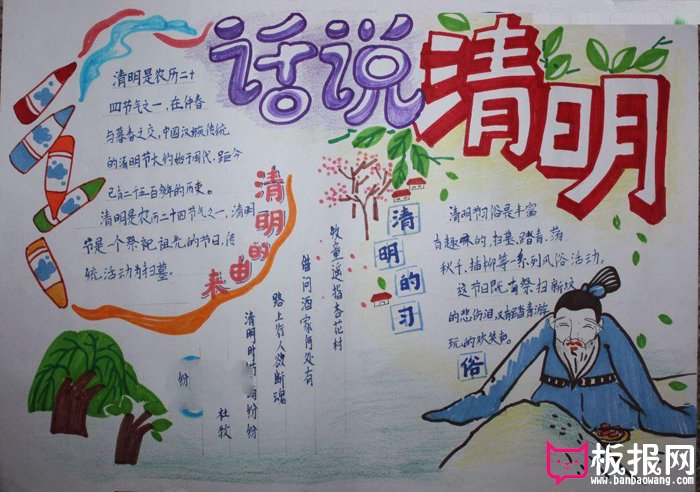 话说清明
清明是农历二十
四节气之一，在仲春
与暮春之交，中国汉族传统
的清明节大约始于周代，距今
已有二百年的历史。
清明是农历二十四节气之一，清明
节是一个祭祀祖先的节日，传
统活动为扫墓。
清明的由来
杜牧
清明时节
路上行人欲断魂
借问酒家何处有
牧童遥指杏花村
份
清明的习俗
清明节习俗是丰富
有趣味的，扫墓、踏青、荡
秋千、插柳等一系列风俗活动。
这节日既有祭扫新坟
的悲伤泪，又有踏青游
玩的欢笑声。
板报网
www.banbaowang.com